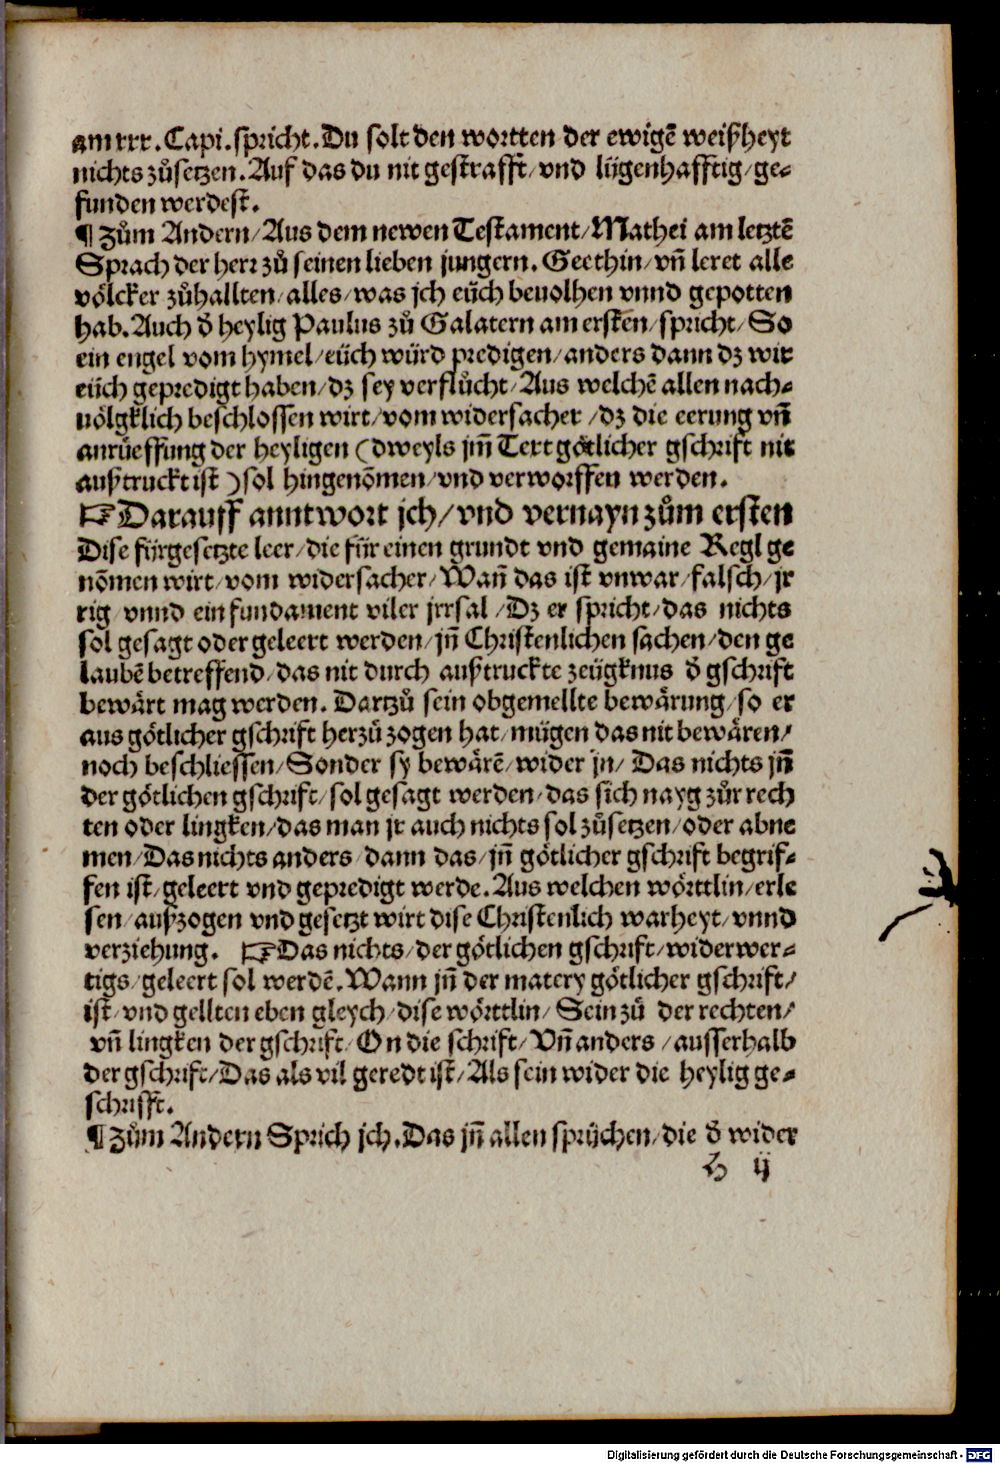 am xxx. Capi. spricht. Du solt den wortten der ewigē weißheyt
nichts zůsetzen. Auf das du nit gestrafft/ vnd lügenhafftig/ ge⸗
funden werdest.
¶ Zům Andern/ Aus dem newen Testament/ Mathei am letztē
Sprach der herr zů seinen lieben jungern. Geethin/ vn̄ leret alle
völcker zůhallten/ alles/ was jch eüch beuolhen vnnd gepotten
hab. Auch d̄ heylig Paulus zů Galatern am ersten/ spricht/ So
ein engel vom hymel/ eüch würd predigen/ anders dann dz wir
eüch gepredigt haben/ dz sey verflůcht/ Aus welchē allen nach⸗
uölgklich beschlossen wirt/ vom widersacher/ dz die eerung vn̄
anrüeffung der heyligen (dweyls jm̄ Text götlicher gschrift nit
außtruckt ist) sol hingenōmen/ vnd verworffen werden.
☞ Darauff anntwort jch/ vnd vernayn zům ersten
Dise fürgesetzte leer/ die für einen grundt vnd gemaine Regl ge
nōmen wirt/ vom widersacher/ Wan̄ das ist vnwar/ falsch/ jr
rig/ vnnd ein fundament viler jrrsal/ Dz er spricht/ das nichts
sol gesagt oder geleert werden/ jn̄ Christenlichen sachen/ den ge
laubē betreffend/ das nit durch außtruckte zeügknus d̄ gschrift
bewärt mag werden. Dartzů sein obgemellte bewärung/ so er
aus götlicher gschrift herzů zogen hat/ mügen das nit bewären/
noch beschliessen/ Sonder sy bewärē/ wider jn/ Das nichts jn̄
der götlichen gschrift/ sol gesagt werden/ das sich nayg zůr rech
ten oder lingken/ das man jr auch nichts sol zůsetzen/ oder abne
men/ Das nichts anders/ dann das/ jn̄ götlicher gschrift begrif⸗
fen ist/ geleert vnd gepredigt werde. Aus welchen wörttlin/ erle
sen/ außzogen vnd gesetzt wirt dise Christenlich warheyt/ vnnd
verziehung. ☞ Das nichts/ der götlichen gschrift/ widerwer⸗
tigs/ geleert sol werdē. Wann jn̄ der matery götlicher gschrift/
ist/ vnd gellten eben gleych/ dise wörttlin/ Sein zů der rechten/
vn̄ lingken der gschrift/ On die schrift/ Vn̄ anders/ ausserhalb
der gschrift/ Das als vil geredt ist/ Als sein wider die heylig ge⸗
schrifft.
¶ Zům Andern Sprich jch. Das jn̄ allen sprüchen/ die d̄ wider
b ij
Digitalisierung gefördert durch die Deutsche Forschungsgemeinschaft - DFG